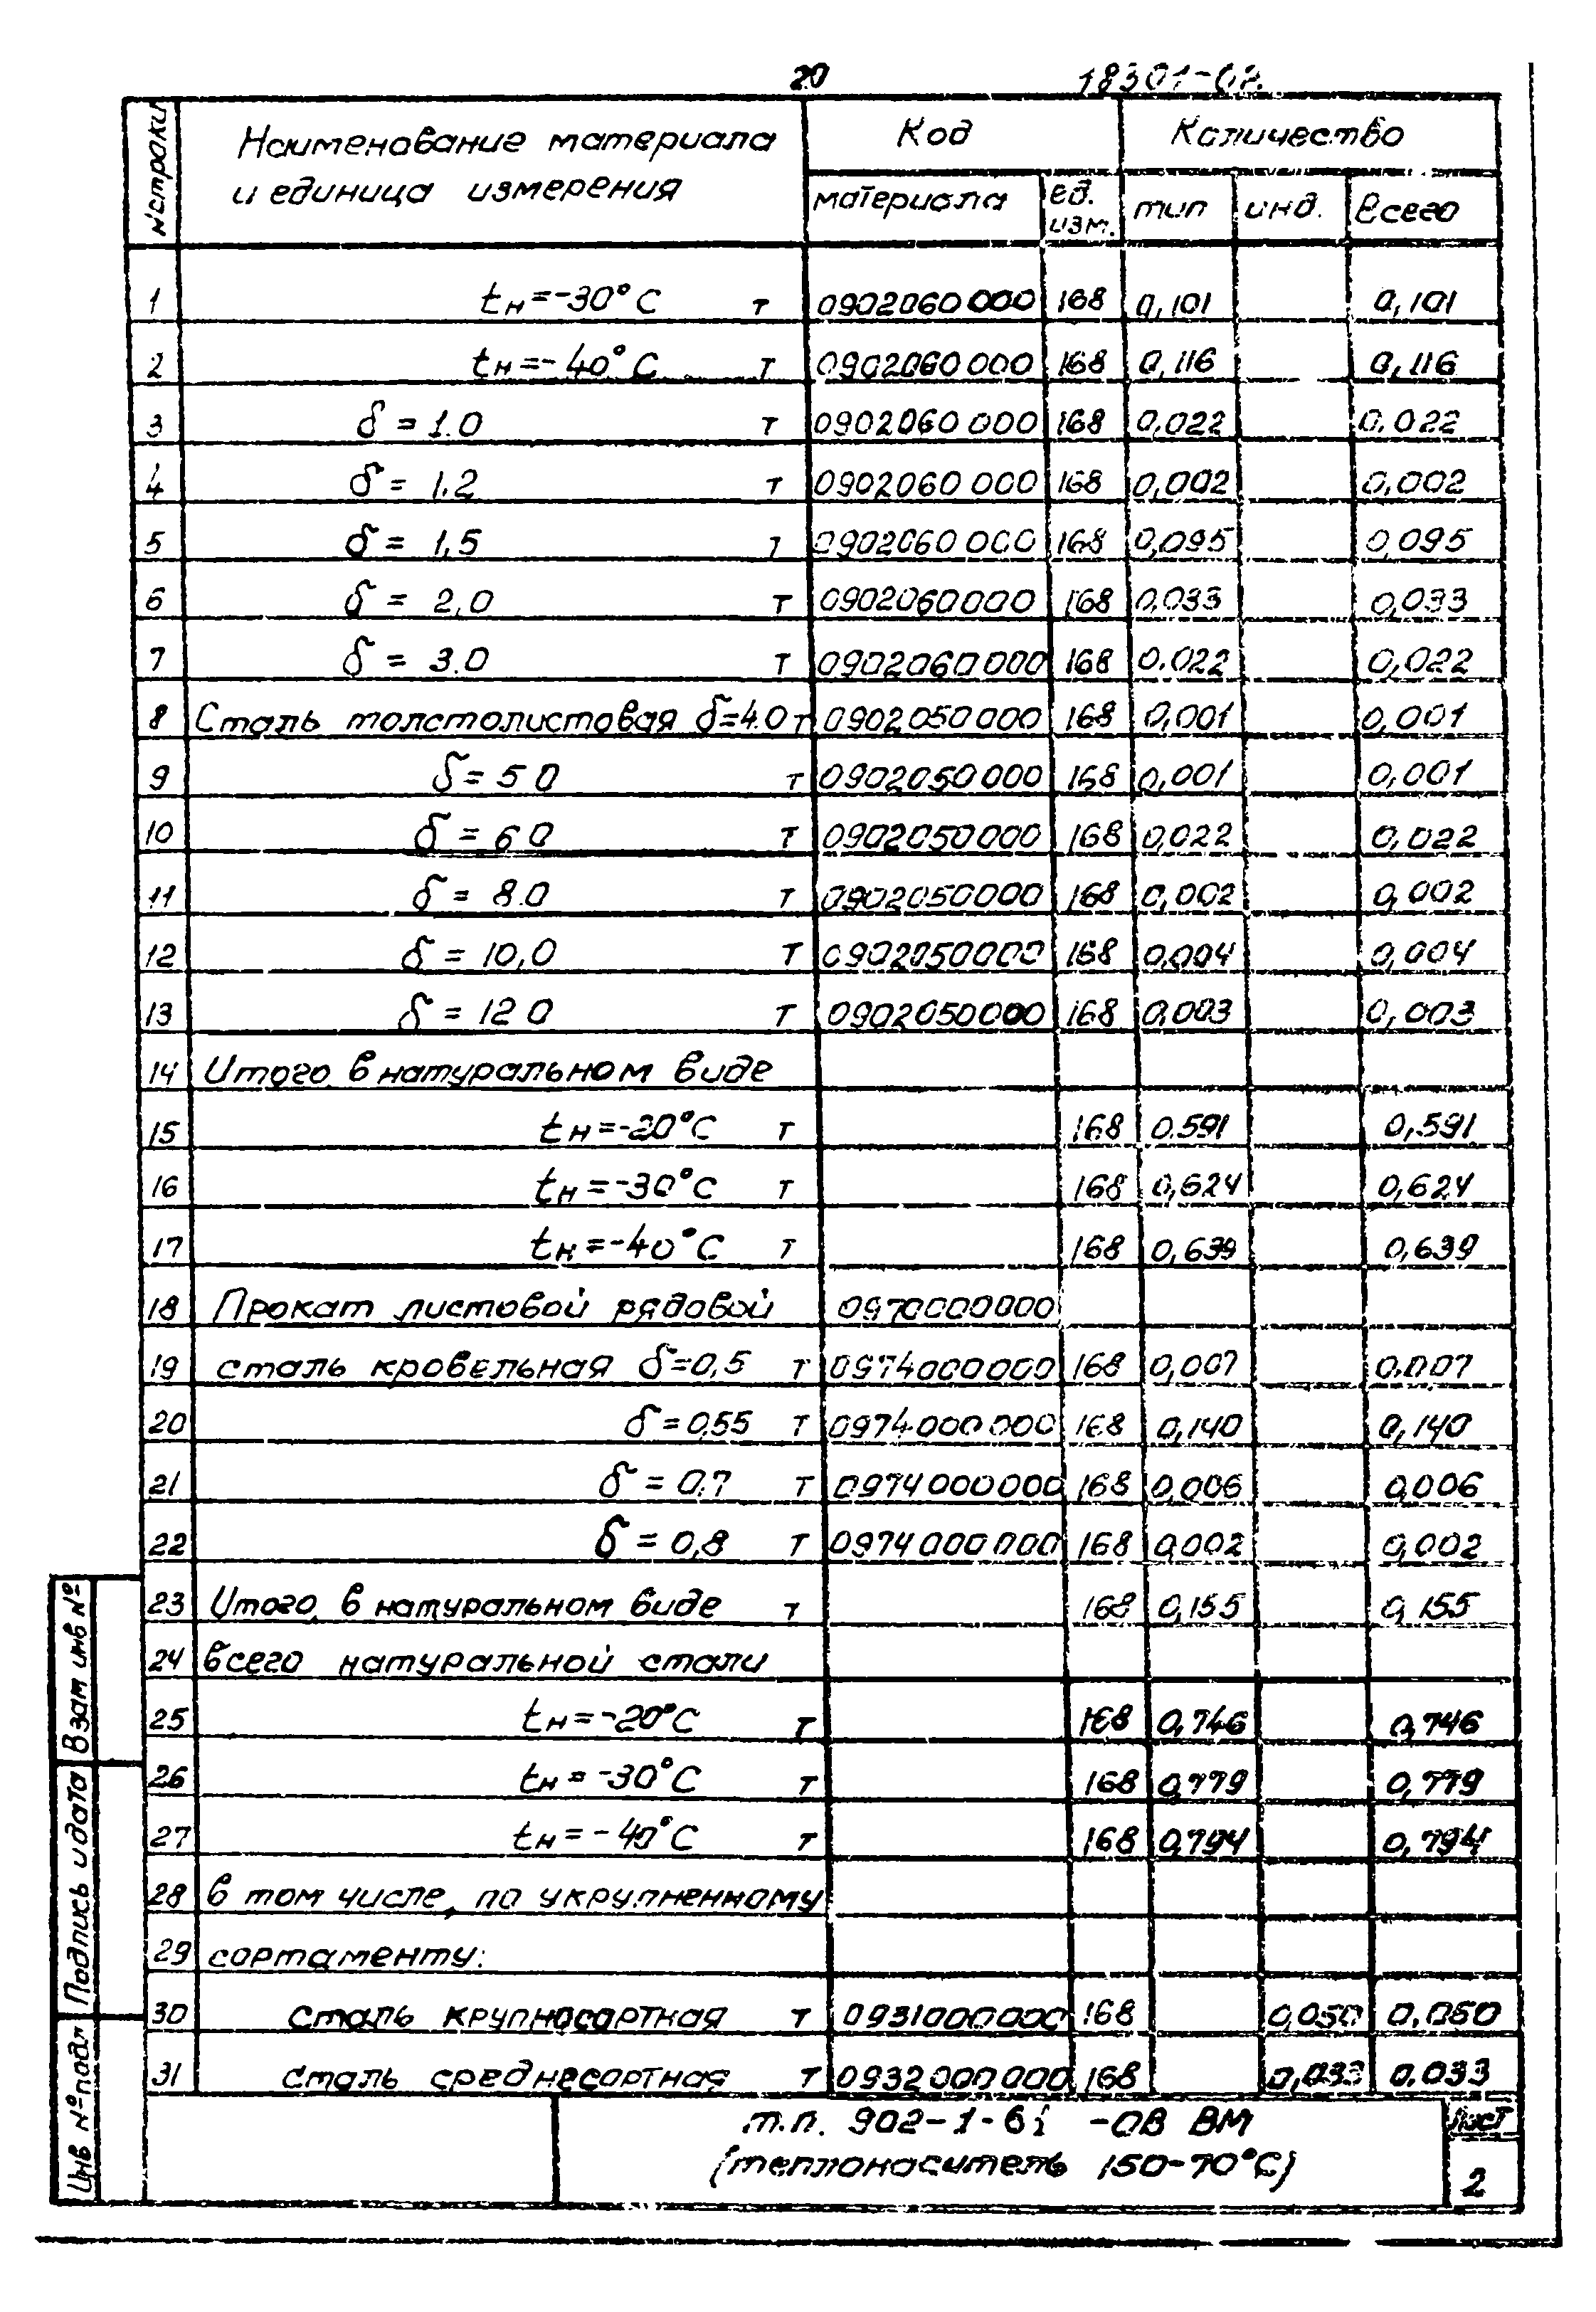 20 18301-02
№ строки Наименование материала и единица измерения Код Количество
материала ед. изм. тип инд. Всего
1 tн=-30°С т 0902060000 168 0,101 0,101
2 tн=-40°С т 0902060000 168 0,116 0,116
3 δ = 1.0 т 0902060000 168 0,022 0,022
4 δ = 1.2 т 0902060000 168 0,002 0,002
5 δ = 1,5 т 0902060000 168 0,095 0,095
6 δ = 2,0 т 0902060000 168 0,033 0,033
7 δ = 3.0 т 0902060000 168 0.022 0,022
8 Сталь толстолистовая δ=4.0 т 0902050000 168 0,001 0,001
9 δ = 5 0 т 0902050000 168 0,001 0,001
10 δ = 6 0 т 0902050000 168 0,022 0,022
11 δ = 8.0 т 0902050000 168 0,002 0,002
12 δ = 10,0 т 0902050000 168 0,004 0,004
13 δ = 12 0 т 0902050000 168 0,003 0,003
14 Итого в натуральном виде
15 tн=-20°С т 168 0.591 0,591
16 tн=-30°С т 168 0,624 0,624
17 tн=-40°С т 168 0,639 0,639
18 Прокат листовой рядовой 0970000000
19 сталь кровельная δ=0,5 т 0974000000 168 0,007 0.007
20 δ=0,55 т 0974000000 168 0,140 0,140
21 δ = 0,7 т 0974000000 168 0,006 0,006
22 δ = 0,8 т 0974000000 168 0,002 0,002
23 Итого в натуральном виде т 168 0,155 0,155
24 всего натуральной стали
25 tн=-20°С т 168 0,746 0,746
26 tн = -30°С т 168 0,779 0,779
27 tн = -40°С т 168 0,794 0,794
28 в том числе, по укрупненному
29 сортаменту:
30 сталь крупносортная т 0931000000 168 0,050 0,050
31 сталь среднесортная т 0932000000 168 0,033 0.033
т.п. 902-1-61 -ОВ ВМ
(теплоноситель 150-70°С)
Лист
2
Взам инв №
Подпись и дата
Инв № подл